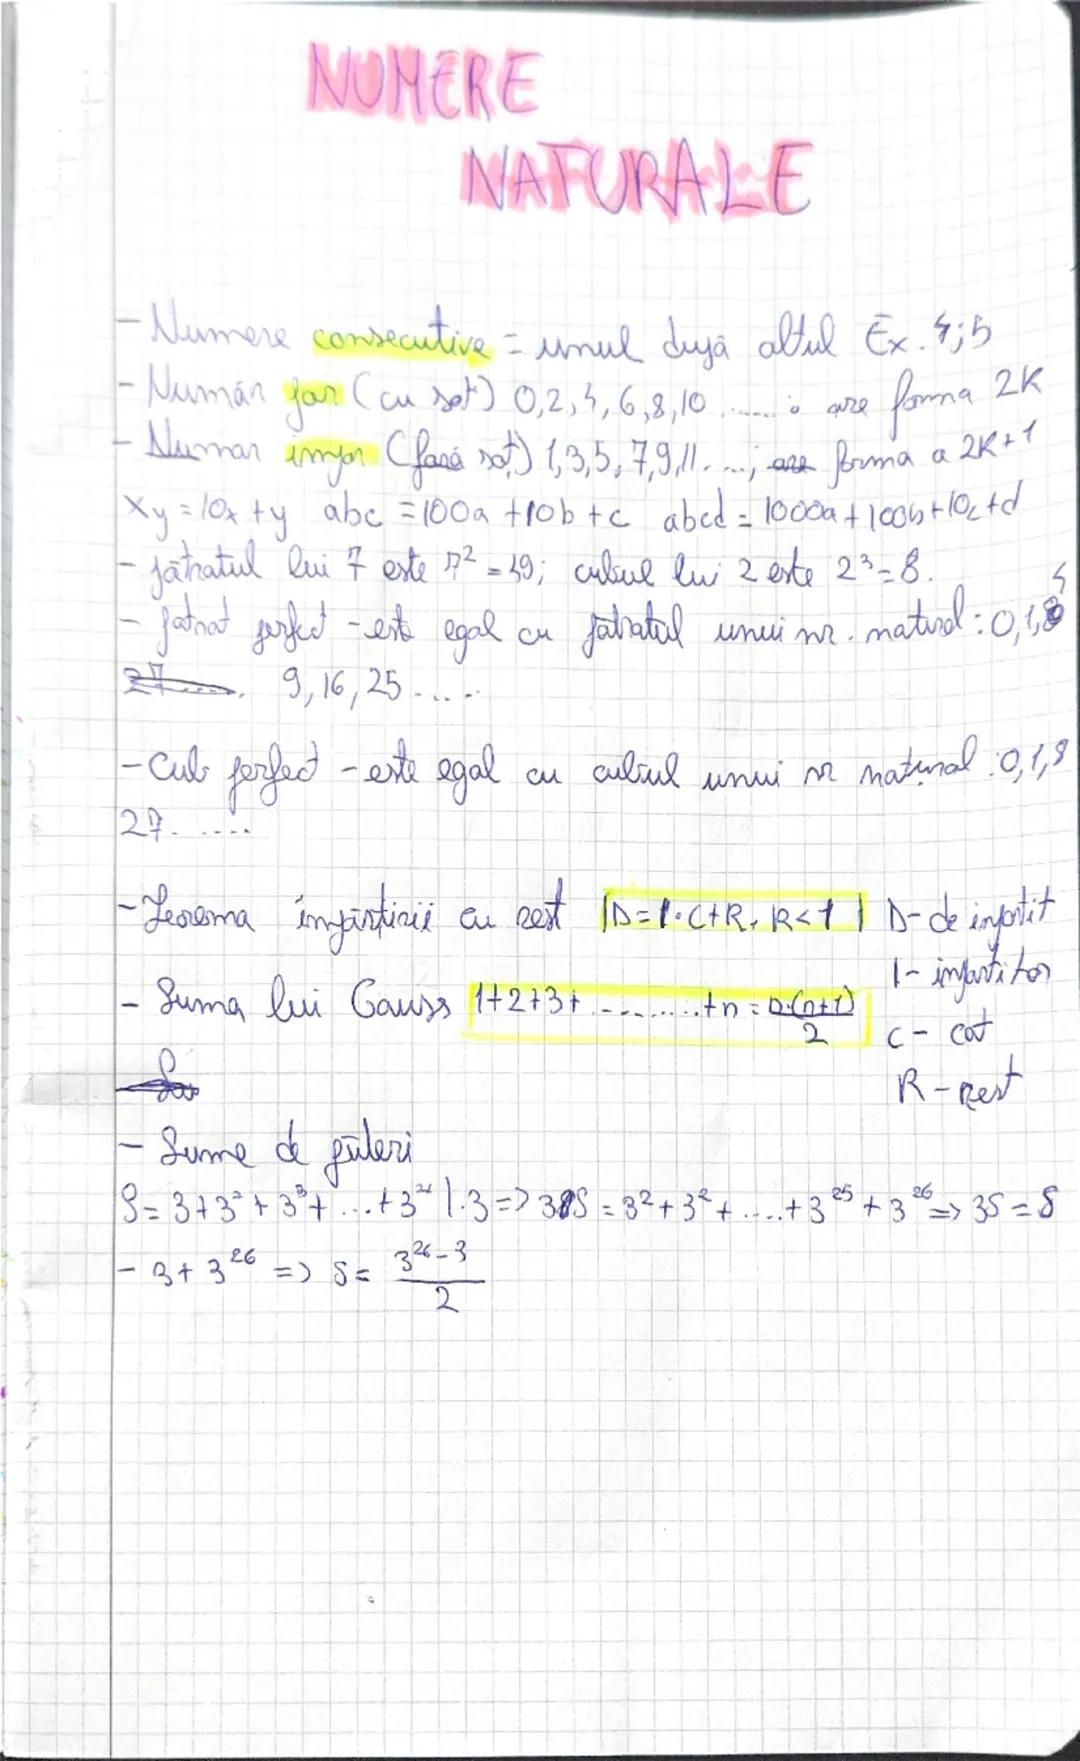 NUMERE
NATURALE
- Numere consecutive = unul după altul Ex. 4;5
- Număr par (cu soț) 0,2,4,6,8,10......; are forma 2K
- Numar impar (fară soț) 1,3,5,7,9,11....; are forma a 2K+1
xy = 10x + y abc = 100a + 10b + c abcd = 1000a + 100b + 10c + d
- pătratul lui 7 este 7² = 49; cubul lui 2 este 2³ = 8.
- patrat perfect - este egal cu pătratul unui nr. natural: 0,1,4
9, 16, 25.....
- Cub perfect - este egal cu cubul unui nr natural: 0,1,8
27......
- Teorema împărțirii cu rest | D = I · C + R, R < I | D - de impartit
I - impartitor
- Suma lui Gauss 1+2+3+..........+n = n·(n+1)/2
C - cat
R - Rest
- Sume de puteri
S = 3 + 3² + 3³ + ...+ 3²⁴ | · 3 => 3S = 3² + 3² + .....+ 3²⁵ + 3²⁶ => 3S = S
- 3 + 3²⁶ => S = 3²⁶ - 3 / 2